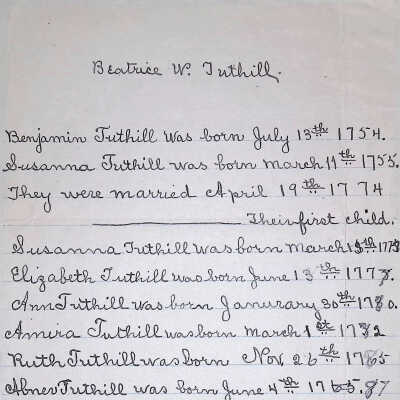 Beatrice W. Tuthill.
Benjamin Tuthill was born July 13th 1754.
Susanna Tuthill was born march 11th 1755.
They were married April 19th 1774
Their first child.
Susanna Tuthill was born march 13th
Elizabeth Tuthill was born June 13th 1778.
Ann Tuthill was born Janurary 30th 1780.
Amira Tuthill was born march 1st 1782
Ruth Tuthill was born Nov. 26th 1785
Abner Tuthill was born June 4th 87